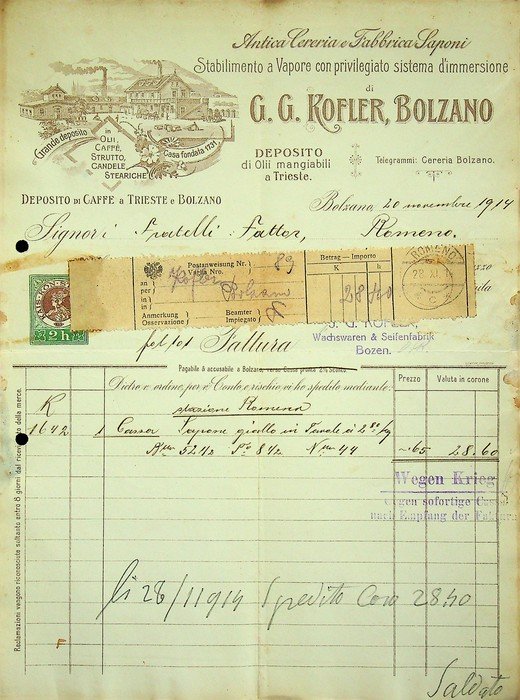 Antica Cereria e Fabbrica Saponi
Stabilimento a Vapore con privilegiato sistema d'immersione
di
G. G. KOFLER, BOLZANO
Grande deposito
in
OLII,
CAFFÈ,
STRUTTO,
CANDELE
STEARICHE
Casa fondata 1731.
DEPOSITO
di Olii mangiabili
a Trieste.
Telegrammi: Cereria Bolzano.
DEPOSITO DI CAFFÈ A TRIESTE E BOLZANO
Bolzano, 20 novembre 1914
Signori Fratelli Fattor, Romeno.
Postanweisung Nr.
Vaglia Nro.
89
an
a
per
in
Kofler
Bolzano
Anmerkung
Osservazione
Beamter
Impiegato
Betrag - Importo
K
h
28 40
ROMENO
28. XI. 14
2 h
G. G. KOFLER,
Wachswaren & Seifenfabrik
Bozen.
Fattura
Pagabile & accusabile a Bolzano, verso Cassa pronta 2% Sconto
Dietro v. ordine per v. Conto e rischio vi ho spedito mediante:
Prezzo
Valuta in corone
stazione Romeno
K
1642
1 Cassa Sapone giallo in
52 1/2 8 1/2 N 44
-.65
28.60
Wegen Krieg
gegen sofortige Cassa
nach Empfang der Faktura
Reclamazioni vengono riconosciute soltanto entro 8 giorni dal ricevimento della merce.
li 28/11 914 Spedito Cor 28.40
Saldato